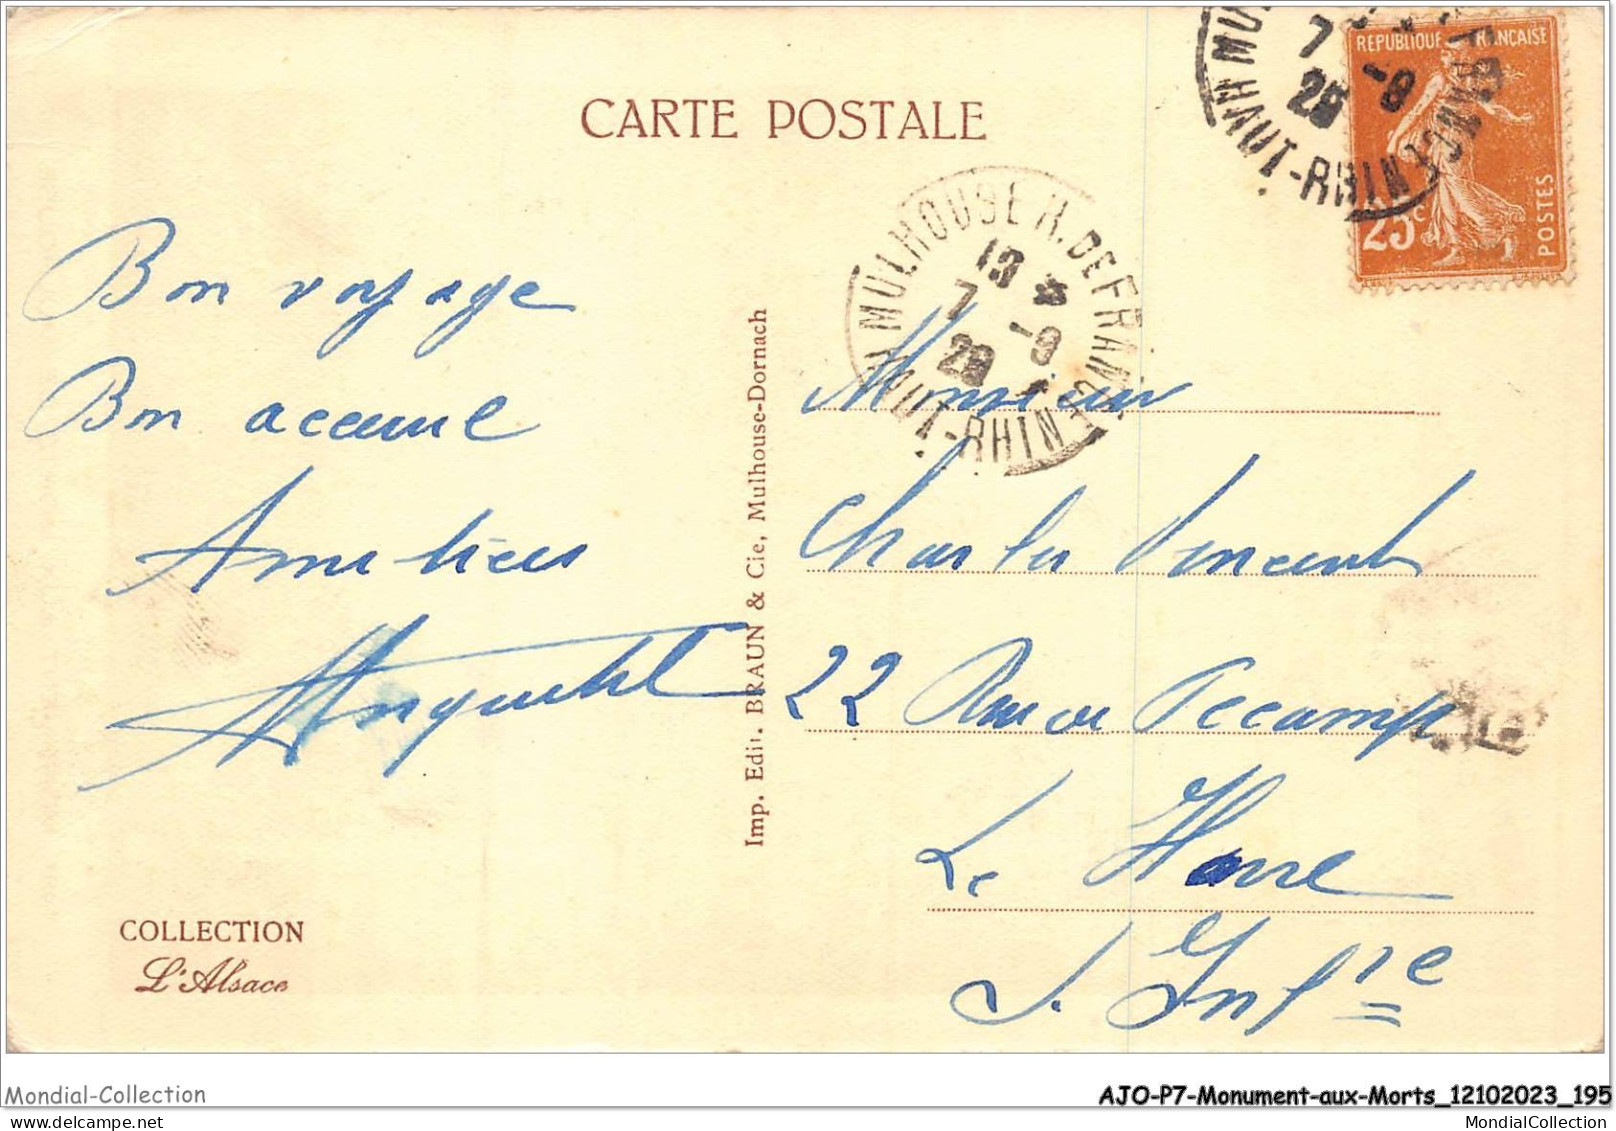 CARTE POSTALE
RÉPUBLIQUE FRANÇAISE
25c
POSTES
MULHOUSE R. DE FRANCE
13
7 -9
28
HAUT-RHIN
7 -9
28
HAUT-RHIN
Bon voyage
Bon accueil
Amitiés
Imp. Edit. BRAUN & Cie, Mulhouse-Dornach
Monsieur
Charles Vincent
22 Rue de Fécamp
Le Havre
S. Infre
COLLECTION
L'Alsace
Mondial-Collection
AJO-P7-Monument-aux-Morts_12102023_195
MondialCollection